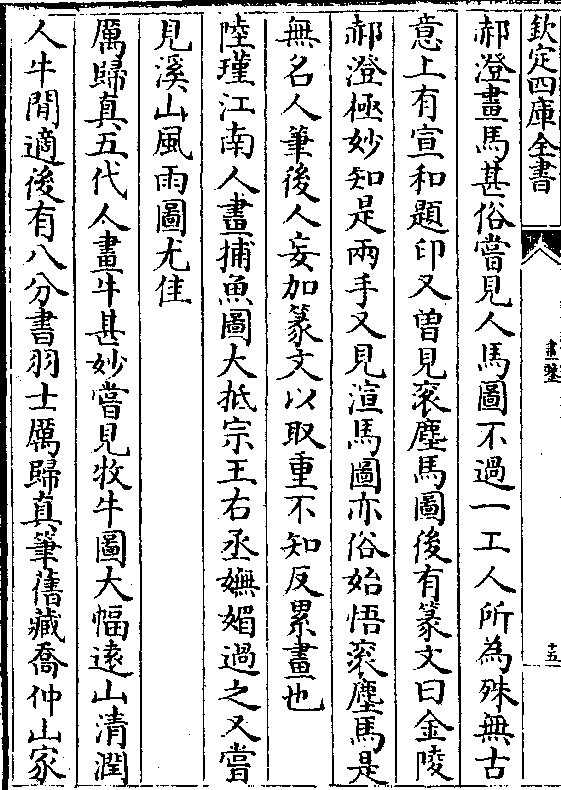 欽定四庫全書
畫鑒
十五
郝澄畫馬甚俗嘗見人馬圖不過一工人所為殊無古
意上有宣和題印又曽見滚塵馬圖後有篆文曰金陵
郝澄極妙知是兩手又見渲馬圖亦俗始悟滚塵馬是
無名人筆後人妄加篆文以取重不知反累畫也
陸瑾江南人畫捕魚圖大抵宗王右丞嫵媚過之又嘗
見溪山風雨圖尤佳
厲歸真五代人畫牛甚妙嘗見牧牛圖大幅遠山清潤
人牛閒適後有八分書羽士厲歸真筆舊藏喬仲山家